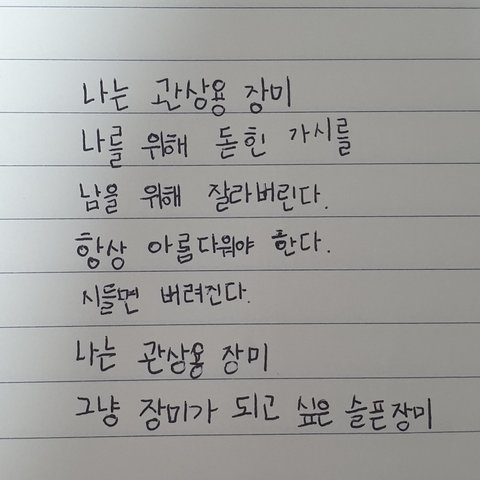 나는 관상용 장미
나를 위해 돋힌 가시를
남을 위해 잘라버린다.
항상 아름다워야 한다.
시들면 버려진다.
나는 관상용 장미
그냥 장미가 되고 싶은 슬픈장미